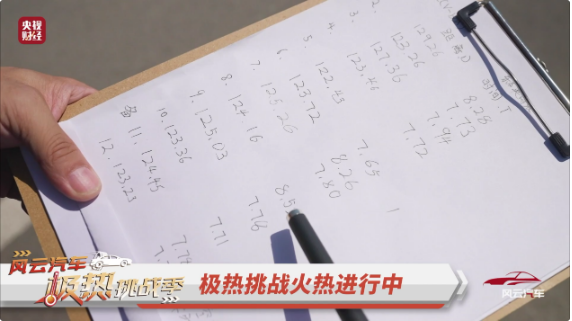 央视
财经
距离D
时间.T
1. 129.26 8.28
2. 123.26 7.73
3. 127.36 7.94
4. 123.46 7.72
5. 122.43
6. 123.72 7.65
7. 125.26 8.26
8. 124.16 7.80
9. 125.03 8.5
10. 123.36 7.78
备 11. 124.45 7.71
12. 123.23
风云汽车
极热挑战季
极热挑战火热进行中
风云汽车